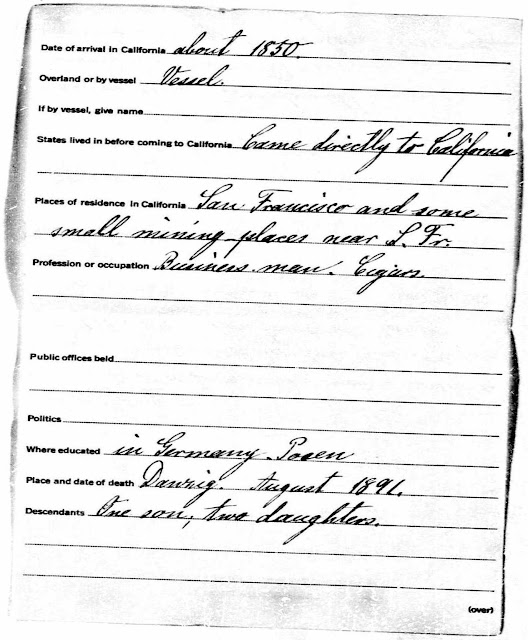 Date of arrival in California about 1850.
Overland or by vessel Vessel.
If by vessel, give name
States lived in before coming to California Came directly to California
Places of residence in California San Francisco and some
small mining places near S. Fr.
Profession or occupation Business man. Cigars.
Public offices held
Politics
Where educated in Germany. Posen
Place and date of death Danzig. August 1891.
Descendants One son, two daughters.
(over)